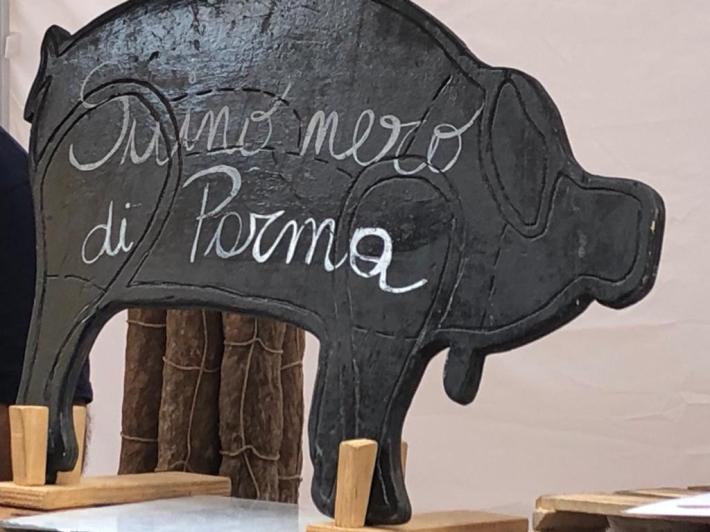 Suino nero
di Parma